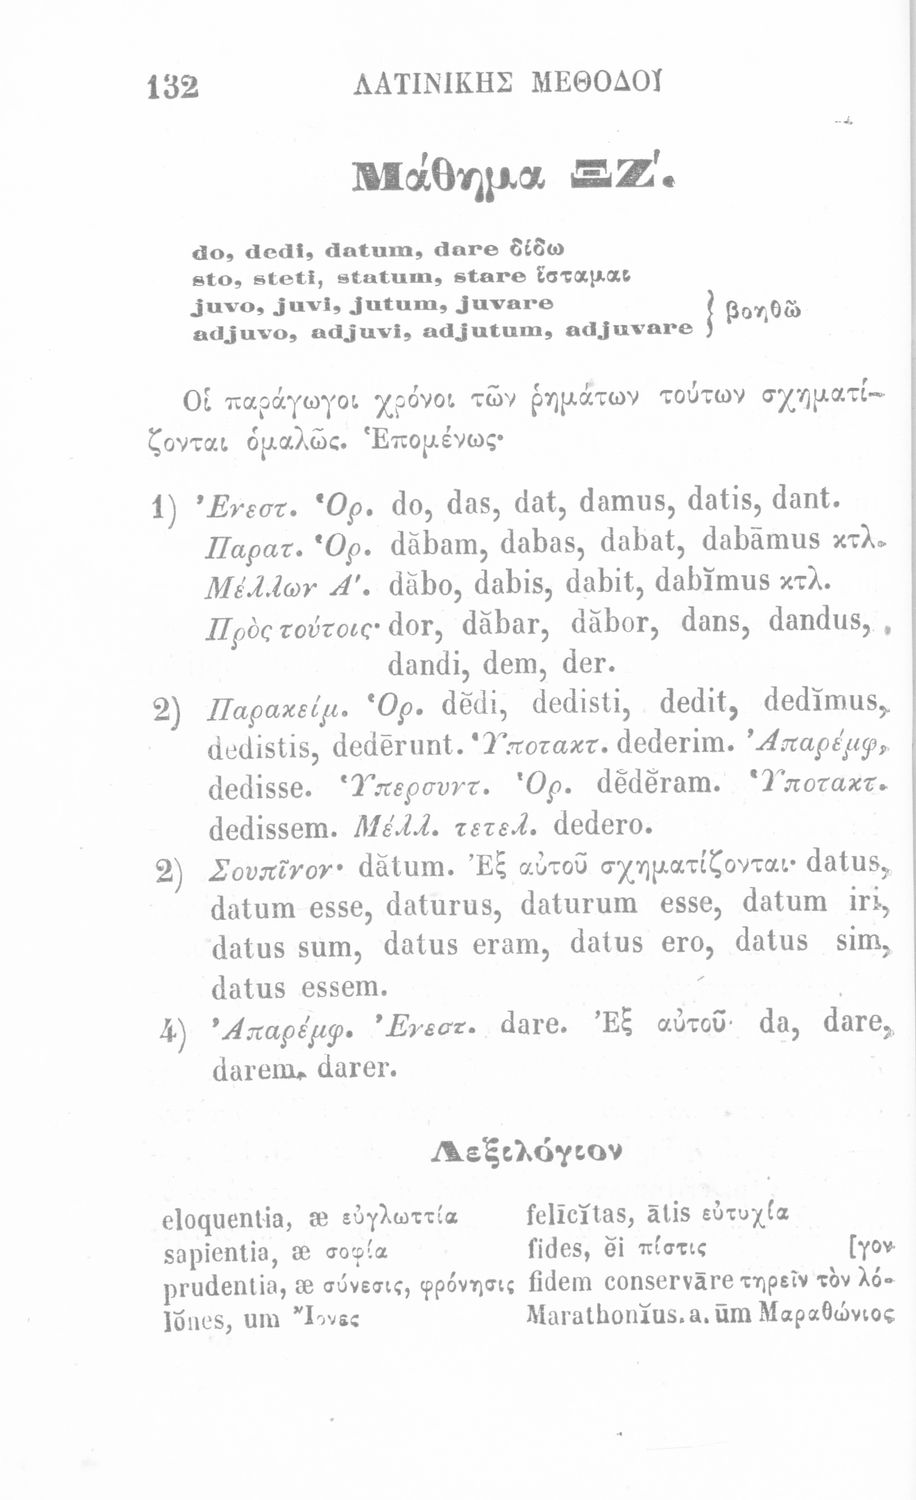 132 ΛΑΤΙΝΙΚΗΣ ΜΕΘΟΔΟΥ
Μάθημα ΞΖ΄.
do, dedi, datum, dare δίδω
sto, steti, statum, stare ἵσταμαι
juvo, juvi, jutum, juvare
adjuvo, adjuvi, adjutum, adjuvare } βοηθῶ
Οἱ παράγωγοι χρόνοι τῶν ῥημάτων τούτων σχηματί-
ζονται ὁμαλῶς. Ἑπομένως·
1) Ἐνεστ. Ὁρ. do, das, dat, damus, datis, dant.
Παρατ. Ὁρ. dăbam, dabas, dabat, dabāmus κτλ.
Μέλλων Α'. dăbo, dabis, dabit, dabĭmus κτλ.
Πρὸς τούτοις· dor, dăbar, dăbor, dans, dandus,
dandi, dem, der.
2) Παρακείμ. Ὁρ. dĕdi, dedisti, dedit, dedĭmus,
dedistis, dedērunt. Ὑποτακτ. dederim. Ἀπαρέμφ,
dedisse. Ὑπερσυντ. Ὁρ. dĕdĕram. Ὑποτακτ.
dedissem. Μέλλ. τετελ. dedero.
2) Σουπῖνον· dătum. Ἐξ αὐτοῦ σχηματίζονται· datus,
datum esse, daturus, daturum esse, datum iri,
datus sum, datus eram, datus ero, datus sim,
datus essem.
4) Ἀπαρέμφ. Ἐνεστ. dare. Ἐξ αὐτοῦ· da, dare,
darem, darer.
Λεξιλόγιον
eloquentia, æ εὐγλωττία
sapientia, æ σοφία
prudentia, æ σύνεσις, φρόνησις
Iōnes, um Ἴωνες
felīcĭtas, ātis εὐτυχία
fides, ĕi πίστις [γον
fidem conservāre τηρεῖν τὸν λό-
Marathonĭus, a, ūm Μαραθώνιος